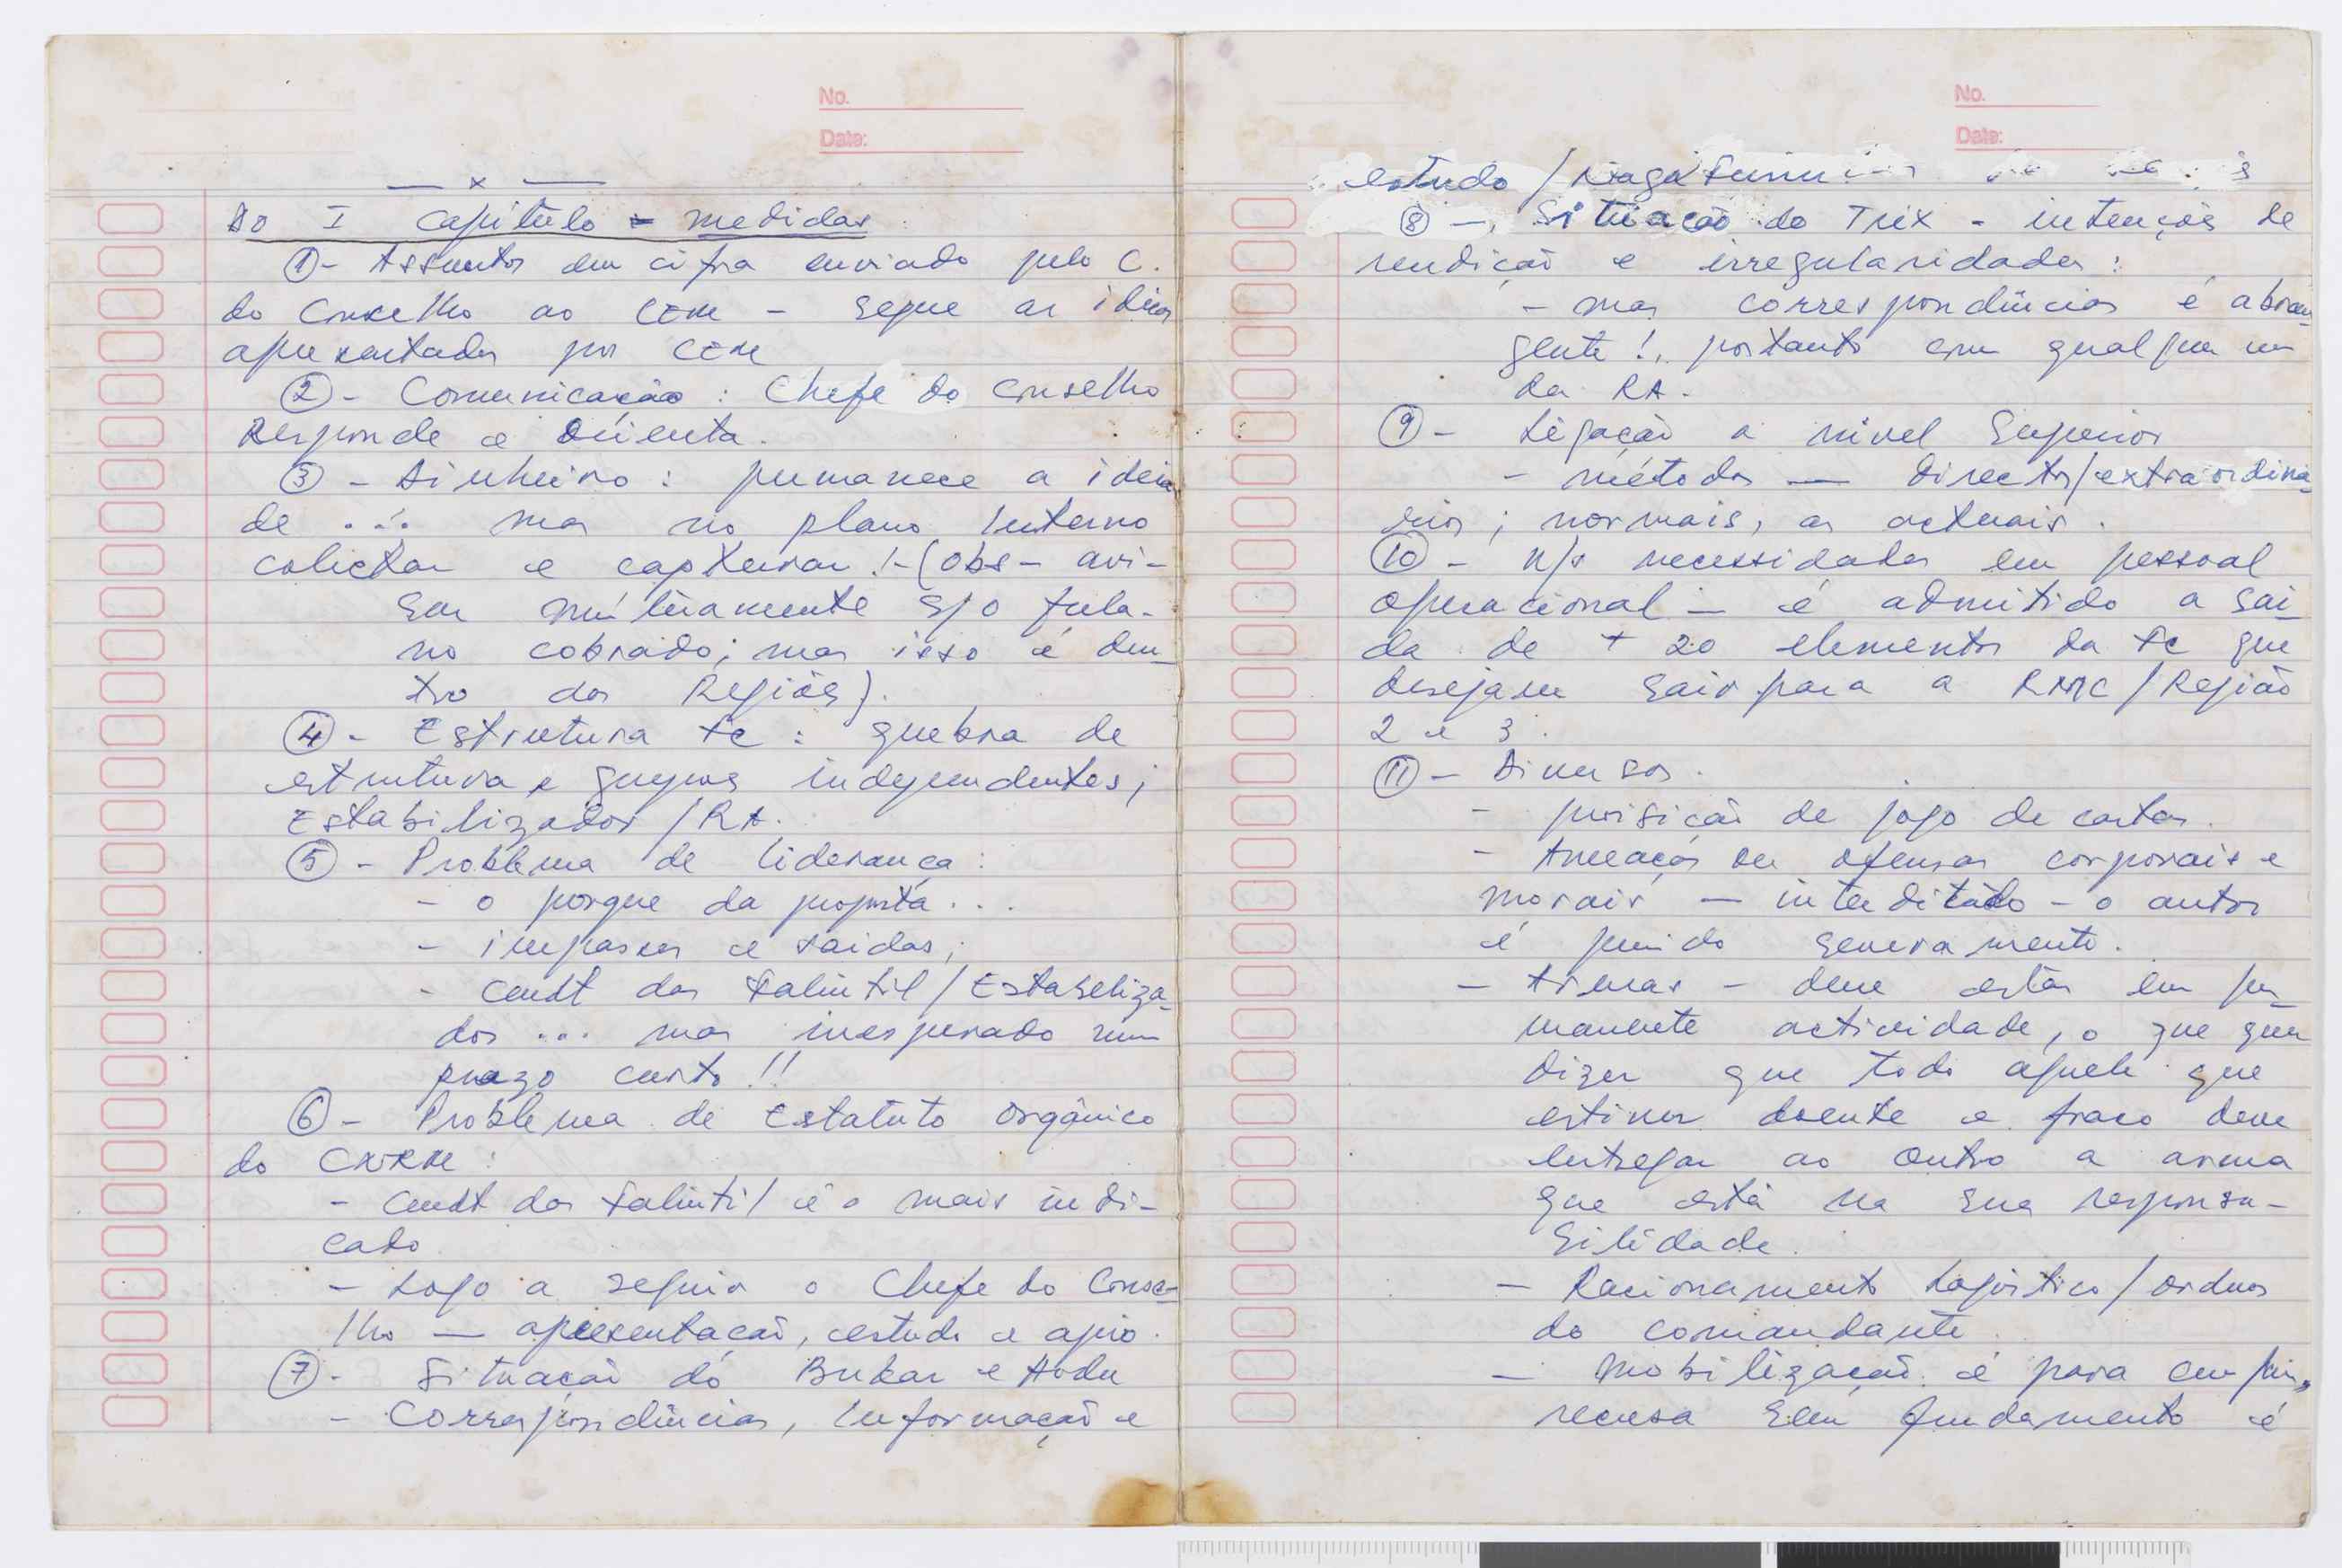 No.
Date:
— x —
Do I capitulo = medidas:
①- Assuntos em cifra enviado pelo C.
do Conselho ao CEM - segue as ideias
apresentadas por CEM
②- Comunicação: Chefe do Conselho
Responde e Orienta.
③ - Dinheiro: permanece a ideia
de ... mas no plano Interno
colectar e capturar!-(obs- avi-
sar mùtuamente s/o fula-
no cobrado; mas isso é den-
tro das Regiões).
④- Estrutura FC: quebra de
estrutura e grupos independentes;
Estabilizados/RA.
⑤- Problema de liderança:
- o porque da proposta...
- impasses e saidas;
- Cmdt das Falintil/Estabeliza-
dos ... mas inesperado num
prazo curto!!
⑥- Problema de Estatuto Orgânico
do CNRM:
- Cmdt das Falintil é o mais indi-
cado
- Logo a seguir o Chefe do Conse-
lho — apresentação, estudo e apoio.
⑦- Situação do Bukar e Hodu
- Correspondências, Informação e
No.
Date:
estudo /
⑧ - Situação do Trix - intenções de
rendição e irregularidades:
- mas correspondências é abran-
gente!, portanto com qualquer um
da RA.
⑨- Ligação a nivel Superior
- métodos — directos/extraordiná-
rios; normais, os actuais.
⑩- n/s necessidades em pessoal
operacional - é admitido a sai-
da de + 20 elementos da FC que
desejam sair para a RMC/Região
2 e 3.
⑪- Diversos.
- proibição de jogo de cartas.
- Ameaças ou ofensas corporais e
morais — interditado - o autor
é punido severamente.
- Armas - deve estar em per-
manente actividade, o que quer
dizer que todo aquele que
estiver doente e fraco deve
entregar ao outro a arma
que está na sua responsa-
bilidade.
- Racionamento Logistico/ordens
do comandante.
- Mobilização é para cumprir,
recusa sem fundamento é